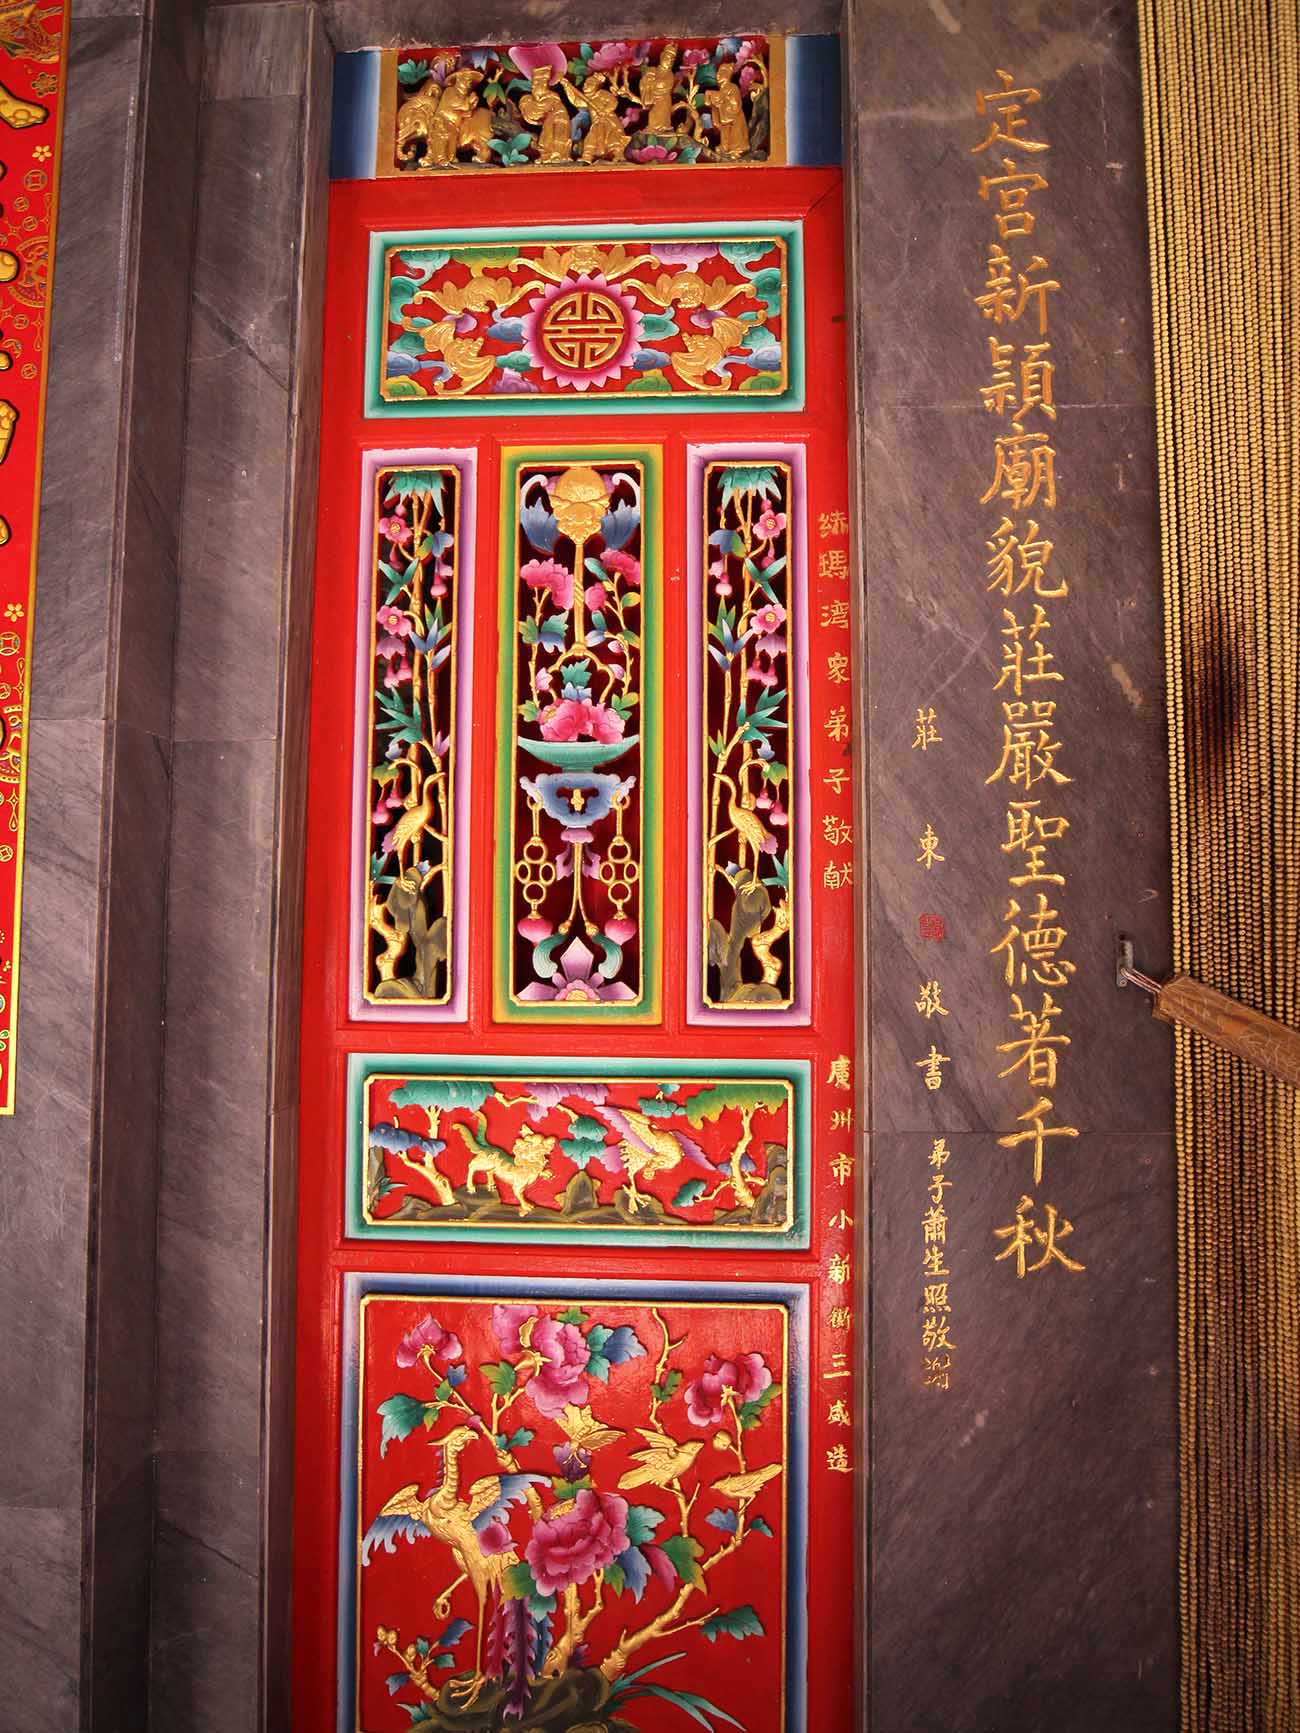 定宮新顈廟貌莊嚴聖德著千秋
莊東敬書
弟子蕭生照敬
瑪湾眾弟子敬献
廣州市小新街三盛造